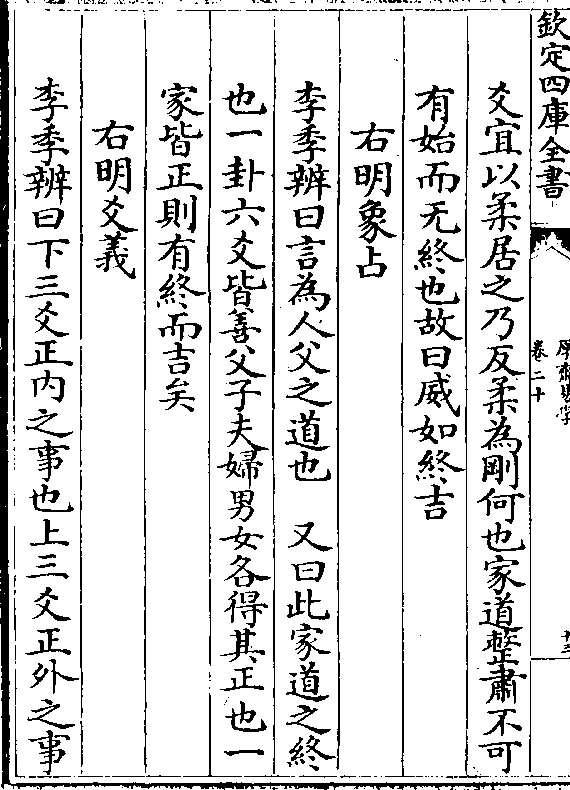 欽定四庫全書
卷二十
爻宜以柔居之乃反柔為剛何也家道整肅不可
有始而无終也故曰威如終吉
右明象占
李季辨曰言為人父之道也　又曰此家道之終
也一卦六爻皆善父子夫婦男女各得其正也一
家皆正則有終而吉矣
右明爻義
李季辨曰下三爻正内之事也上三爻正外之事